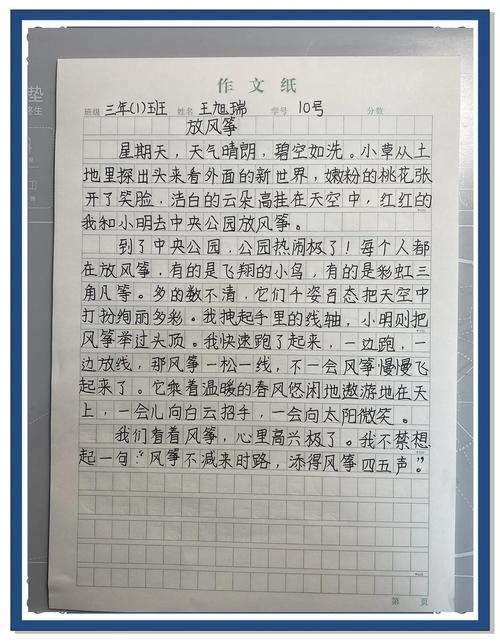 作文纸
班级 三年(1)班 姓名 王旭瑞 学号 10号 分数
放风筝
星期天，天气晴朗，碧空如洗。小草从土
地里探出头来看外面的新世界，嫩粉的桃花张
开了笑脸，洁白的云朵高挂在天空中，红红的
我和小明去中央公园放风筝。
到了中央公园，公园热闹极了！每个人都
在放风筝，有的是飞翔的小鸟，有的是彩虹三
角几等。多的数不清，它们千姿百态把天空中
打扮绚丽多彩。我拽起手里的线轴，小明则把
风筝举过头顶。我快速跑了起来，一边跑，一
边放线，那风筝一松一线，不一会风筝慢慢飞
起来了。它乘着温暖的春风悠闲地遨游地在天
上，一会儿向白云招手，一会向太阳微笑。
我们看着风筝，心里高兴极了。我不禁想
起一句："风筝不减来时路，添得风筝四五声"。
第 页